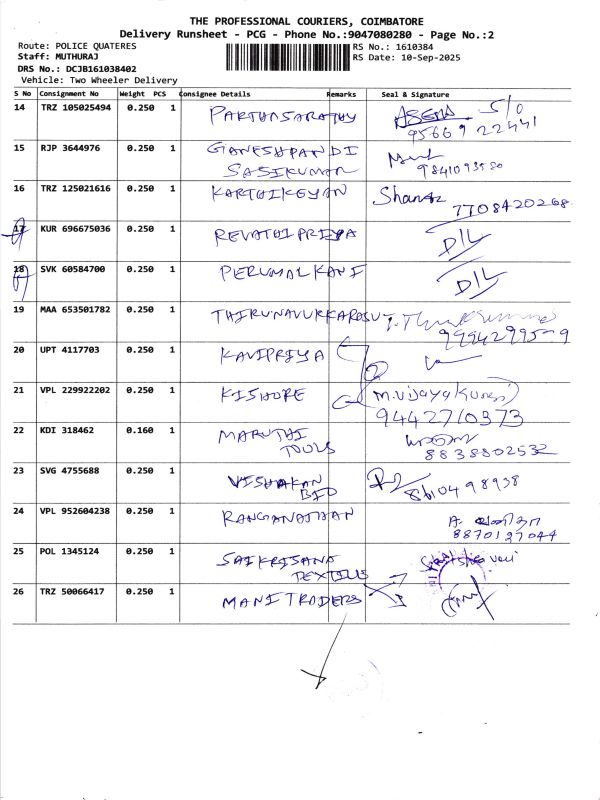 THE PROFESSIONAL COURIERS, COIMBATORE
Delivery Runsheet - PCG - Phone No.:9047080280 - Page No.:2
Route: POLICE QUATERES RS No.: 1610384
Staff: MUTHURAJ RS Date: 10-Sep-2025
DRS No.: DCJB161038402
Vehicle: Two Wheeler Delivery
S No Consignment No Weight PCS Consignee Details Remarks Seal & Signature
14 TRZ 105025494 0.250 1 PARTHASARATHY S/O
95669 22441
15 RJP 3644976 0.250 1 GANESHPANDI
SASIKUMAR 9841093580
16 TRZ 125021616 0.250 1 KARTHIKEYAN
7708420268
17 KUR 696675036 0.250 1 REVATHI PRIYA D/L
18 SVK 60584700 0.250 1 PERUMAL KANI D/L
19 MAA 653501782 0.250 1 THIRUNAVUKKARASU
20 UPT 4117703 0.250 1 KAVIPRIYA
21 VPL 229922202 0.250 1 KISHORE M.Vijayakumar
9442710373
22 KDI 318462 0.160 1 MARUTHI
TOOLS 8838802532
23 SVG 4755688 0.250 1 VISHAKAN
BIO 8610498938
24 VPL 952604238 0.250 1 RANGANATHAN
8870127044
25 POL 1345124 0.250 1 SAIKRISANA
TEXTILES
26 TRZ 50066417 0.250 1 MANI TRADERS